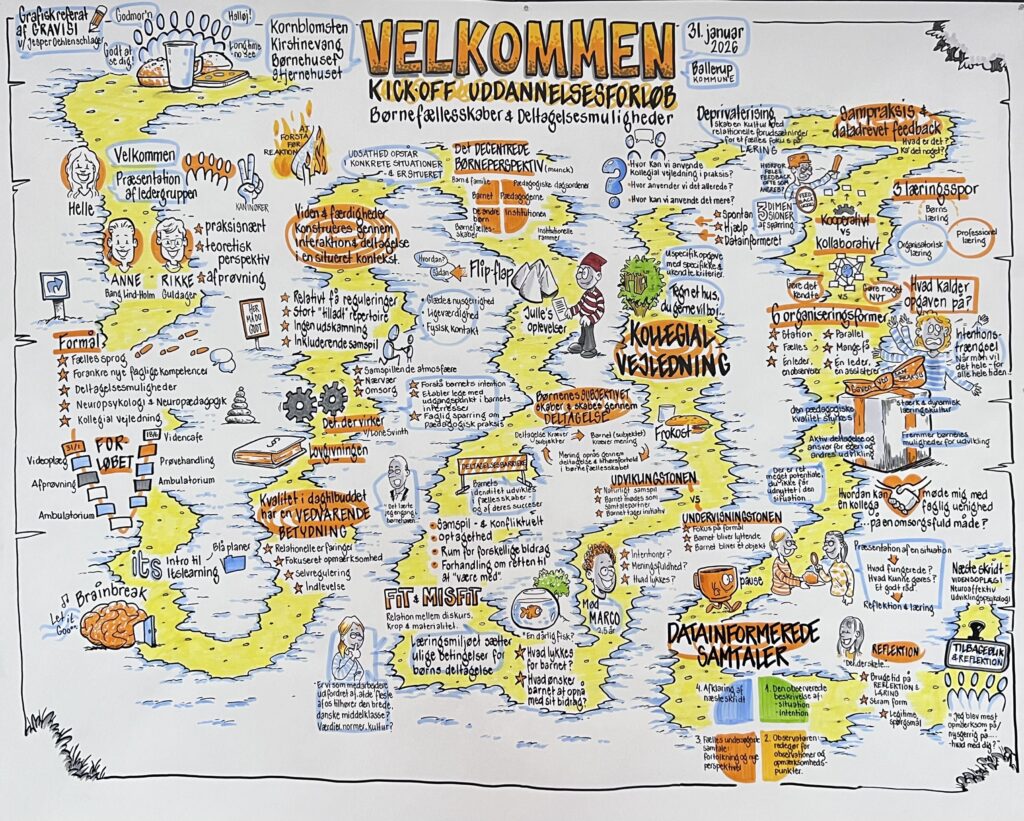 Grafisk referat
af GRAVISI
v/ Jesper Oehlenschlæger
Godmor'n
Halløj!
Godt at
se dig!
Long time
no see
Kornblomsten
Kirstinevang,
Børnehuset
& Hjernehuset
VELKOMMEN
KICK-OFF UDDANNELSESFORLØB
Børnefællesskaber & Deltagelsesmuligheder
31. januar
2026
Ballerup
KOMMUNE
Velkommen
Præsentation
af ledergruppen
Helle
KAN I NØRER
★ praksisnært
★ teoretisk
perspektiv
★ afprøvning
ANNE
Bang Lind-Holm
RIKKE
Guldager
AT
FORSTÅ
FØR
REAKTION
Formål
★ Fælles sprog
★ Forankre nye faglige kompetencer
★ Deltagelsesmuligheder
★ Neuropsykologi & Neuropædagogik
★ Kollegial Vejledning
HER
MÅ DU
GODT
31/1
FOR
LØBET
18/4
Videoplæg
Afprøvning
Ambulatorium
Videncafe
Prøvehandling
Ambulatorium
its
Intro til
Itslearning
Blå planer
♫ Brainbreak
Let it
Goo
UDSATHED OPSTÅR
KONKRETE SITUATIONER
- & ER SITUERET
Viden & færdigheder
Konstrueres gennem
interaktion & deltagelse
i en situeret kontekst.
★ Relativt få reguleringer
★ Stort "tilladt" repertoire
★ Ingen udskamning
★ Inkluderende samspil
★ Samspillende atmosfære
★ Nærvær
★ Omsorg
★ Forstå barnets intention
★ Etabler lege med
udgangspunkt i barnets
interesser
★ Faglig sparring om
pædagogisk praksis
Det, der virker
v/ Lone Svinth
Lovgivningen
Kvalitet i dagtilbuddet
har en VEDVARENDE
BETYDNING
★ Relationelle erfaringer
★ Fokuseret opmærksomhed
★ Selvregulering
★ Indlevelse
- Er vi som medarbejdere
udfordret af, at de fleste
af os tilhører den brede
danske middelklasse?
Værdier, normer, kultur?
Det DECENTREDE
BØRNEPERSPEKTIV
(munck)
Barn & familie
Pædagogiske dagsordener
Barnet
Pædagogerne
De andre
børn
Institutionen
Børnefælles-
skaber
Institutionelle
rammer
Hvordan?
Sådan
Flip-flap
- Glæde & nysgerrighed
- Ligeværdighed
- Fysisk kontakt
Julle's
oplevelser
Børnenes SUBJEKTIVITET
skaber & skabes gennem
DELTAGELSE
Deltagelse kræver
subjekter
Barnet (subjektet)
kræver mening
Mening opnås gennem
deltagelse & tilhørsforhold i
børnefællesskabet
DELTAGELSESBARRIERE
Barnets
identitet udvikles
i fællesskaber
og af deres succeser
Samspil- & Konfliktuelt
Optagethed
Rum for forskellige bidrag
Forhandling om retten til
at "være med".
FIT & MISFIT
Relation mellem diskurs,
krop & materialitet.
Læringsmiljøet sætter
ulige betingelser for
børns deltagelse
"En dårlig fisk?"
★ Hvad lykkes
for barnet?
★ Hvad ønsker
barnet at opnå
med sit bidrag?
Mød
MARCO
2,5 år
★ Intentioner?
★ Meningsfuldhed?
★ Hvad lykkes?
?
• Hvor kan vi anvende
Kollegial vejledning i praksis?
• Hvor anvender vi det allerede?
• Hvor kan vi anvende det mere?
Uspecifik opgave
med specifikke &
ukendte kriterier.
Tegn et hus,
du gerne vil bo i.
KOLLEGIAL
VEJLEDNING
FROKOST
UDVIKLINGSTONEN
★ Naturligt samspil
★ Barnet mødes som
samtalepartner
★ Barnet tager initiativ
VS
UNDERVISNINGSTONEN
★ Fokus på formål
★ Barnet bliver lyttende
★ Barnet bliver et objekt
pause
DATAINFORMEREDE
SAMTALER
4. Afklaring af
næste skridt
1. Den observerede
beskrivelse af:
- situation
- intention
3. Fælles undersøgende
samtale:
Fortolkning og nye
perspektiver
2. Observatøren
redegør for
observationer og
opmærksomheds-
punkter.
Deprivatisering
Skab en kultur med
relationelle forudsætninger
for et fælles fokus på
LÆRING
HVORFOR
FØLES
FEEDBACK
OFTE SOM
ANGREB?
FEED
BACK
3 DIMEN
SIONER
af sparring
★ Spontan
★ Hjælp
★ Datainformeret
Sampraksis &
datadrevet feedback
Hvad er det?
Ka' det noget?
Kooperativt
VS
Kollaborativt
Gøre det
Kendte
VS
Gøre noget
NYT
3 læringsspor
Børns
læring
Organisatorisk
læring
Professionel
læring
Hvad kalder
opgaven på?
6 organiseringsformer
★ Station
★ Fælles
★ En leder,
en observerer
★ Parallel
★ Mange/få
★ En leder,
en assisterer
Intentions-
trængsel
Når man vil
det hele - for
alle hele tiden!
Styrk den pædagogiske
kvalitet
Stærk & dynamisk
læringskultur
Aktiv deltagelse og
ansvar for egen og
andres udvikling
Fremmer børnenes
muligheder for udvikling
Der er et
meget potentiale,
du ikke får
udnyttet i den
situation.
Hvordan kan
en kollega
møde mig med
faglig uenighed
...på en omsorgsfuld måde?
Præsentation af situation
Hvad fungerede?
Hvad kunne gøres?
Et godt råd
Refleksion & læring
Næste skridt
VIDENSOPLÆG I
Neuroaffektiv
Udviklingspsykologi
REFLEKTION
★ Brug tid på
REFLEKTION &
LÆRING
★ Stram form
★ Legitime
spørgsmål
TILBAGEBLIK
& REFLEKTION
"Jeg blev mest
opmærksom på/
nysgerrig på...
- hvad med dig?"